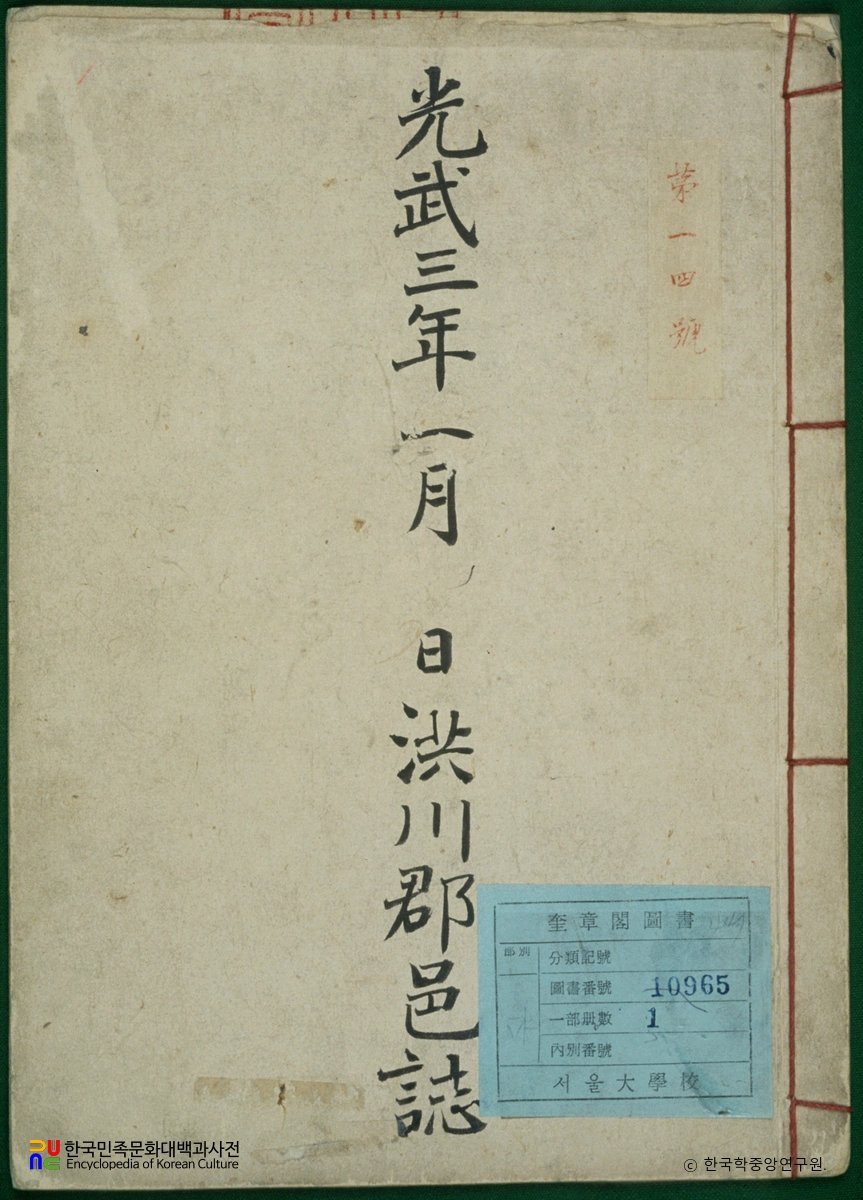 第一四號
光武三年一月 日洪川郡邑誌
奎章閣圖書
部別
分類記號
圖書番號 10965
一部册數 1
內別番號
서울大學校
한국민족문화대백과사전
Encyclopedia of Korean Culture
ⓒ 한국학중앙연구원.